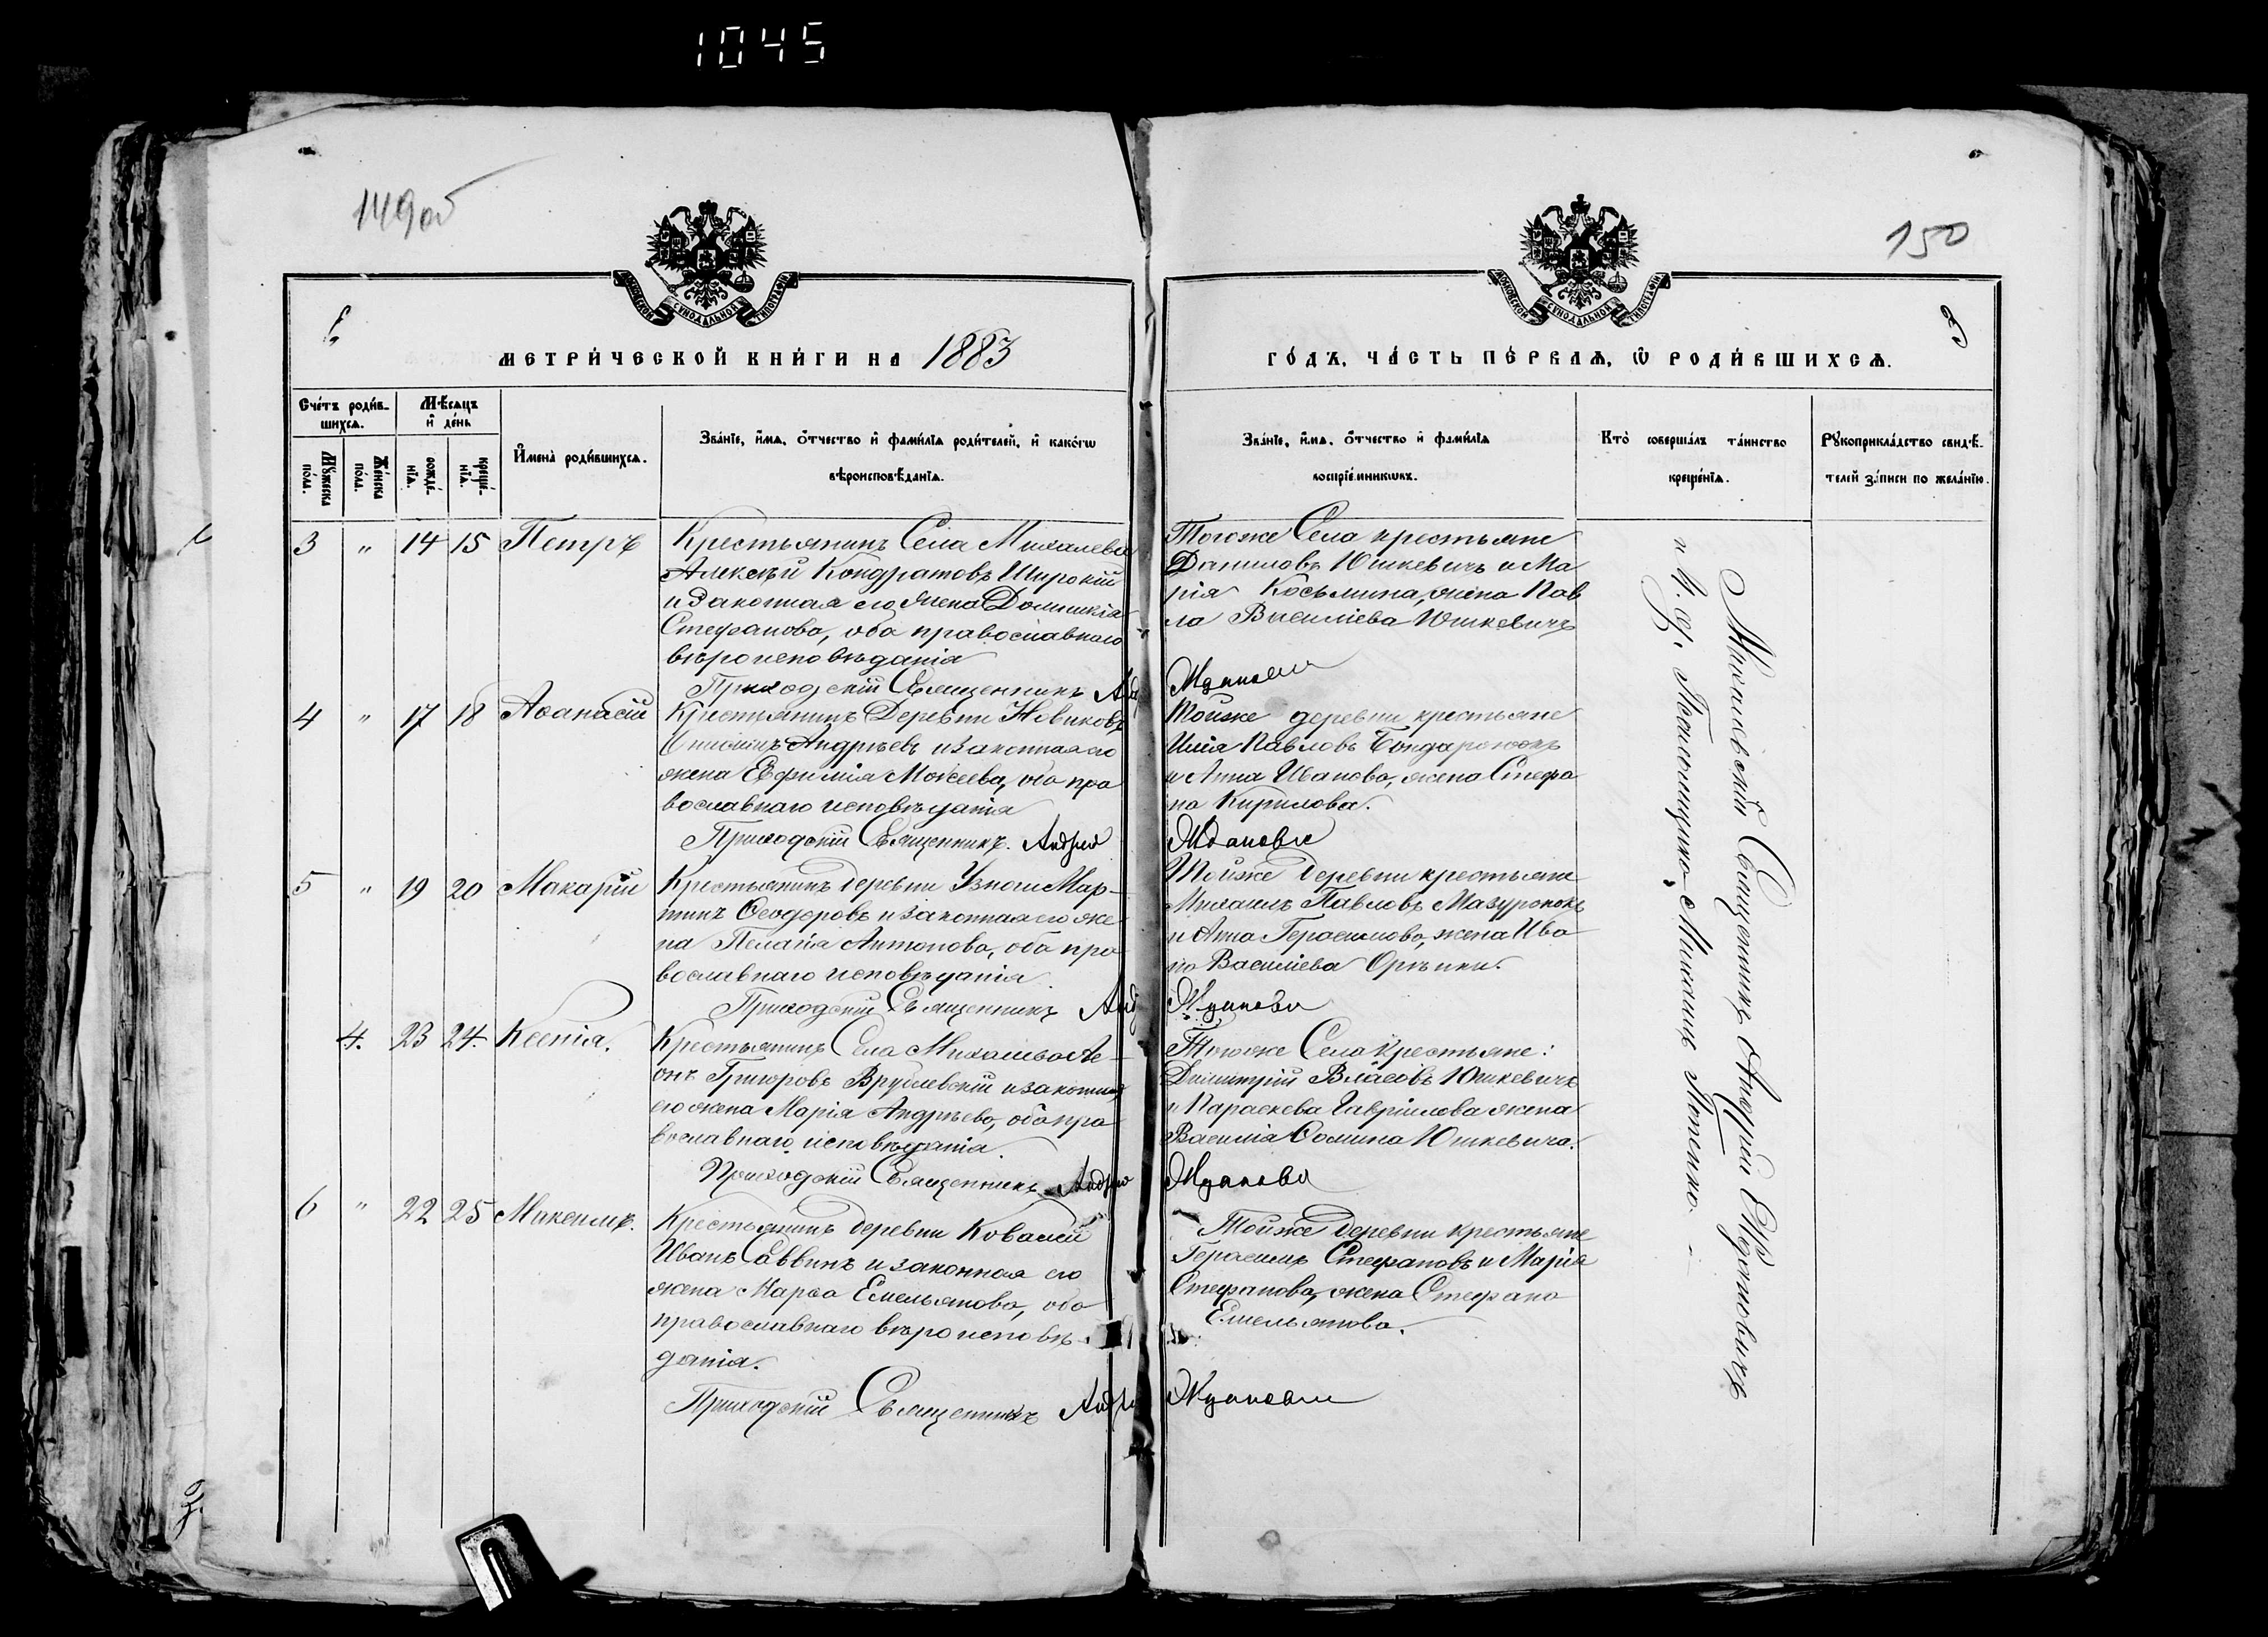 1045
149об
150
3
МОСКОВСКОЙ СѴНОДАЛЬНОЙ ТИПОГРАФІИ
МОСКОВСКОЙ СѴНОДАЛЬНОЙ ТИПОГРАФІИ
МЕТРИ́ЧЕСКОЙ КНИ́ГИ НА 1883
ГО́ДЪ, ЧА́СТЬ ПЕ́РВАѦ, Ѿ РОДИ́ВШИХСѦ.
Сче́тъ роди́в-
шихсѧ.
Мѣ́сѧцъ
и҆ де́нь
Мꙋ́жеска
по́ла.
Же́нска
по́ла.
рожде́-
нїѧ.
креще́-
нїѧ.
И҆мена̀ роди́вшихсѧ.
Зва́нїе, и҆́мѧ, ѻ҆́тчество и҆ фами́лїѧ роди́телей, и҆ како́гѡ
вѣроисповѣ́данїѧ.
Зва́нїе, и҆́мѧ, ѻ҆́тчество и҆ фами́лїѧ
воспрїе́мникѡвъ.
Кто̀ соверша́лъ та́инство
креще́нїѧ.
Рꙋкоприкла́дство свидѣ́-
телей за́писи по жела́нїю.
3 " 14 15 Петръ
Крестьянинъ Села Михалева
Алексѣй Кондратовъ Широкій
и законная его жена Домникія
Стефанова, оба православнаго
вѣроисповѣданія
Приходскій Священникъ Анд
Тогоже Села крестьяне
Даниловъ Юшкевичъ и Ма
рія Косьмина, жена Пав
ла Василіева Юшкевичъ
Жданови
4 " 17 18 Аѳанасій
Крестьянинъ Деревни Новиковъ
Андрѣевъ и законная его
жена Евфимія Моисеева, оба пра
вославнаго исповѣданія
Приходскій Священникъ. Андрей
Тойже деревни крестьяне
Илія Павловъ Бондаронокъ
и Анна Иванова, жена Стефа
на Кирилова.
Жданови
5 " 19 20 Макарій
Крестьянинъ деревни Узноги Мар-
тинъ Ѳеодоровъ и законная его же
на Пелагія Антонова, оба пра
вославнаго исповѣданія.
Приходскій Священникъ Анд
Тойже деревни крестьяне
Михаилъ Павловъ Мазуронокъ
и Анна Герасимова, жена Ива
на Василіева
Жданови
4. 23 24. Ксенія.
Крестьянинъ Села Михалева Ле-
онъ Григоровъ Врублевскій и законная
его жена Марія Андрѣева, оба пра
вославнаго исповѣданія.
Приходскій Священникъ Андрей
Тогоже Села Крестьяне:
Димитрій Власовъ Юшкевичъ
и Параскева Гавріилова жена
Василія Ѳомина Юшкевича.
Жданови
6 " 22 25 Максимъ.
Крестьянинъ деревни Ковалей
Иванъ Саввинъ и законная его
жена Марѳа Емельянова, оба
православнаго вѣроисповѣ-
данія.
Приходскій Священникъ Андрей
Тойже деревни крестьяне
Герасимъ Стефановъ и Марія
Стефанова, жена Стефана
Емельянова.
Жданови
Михалевскій Священникъ Андрей Ждановичъ
и И. д. Псаломщика Михаилъ